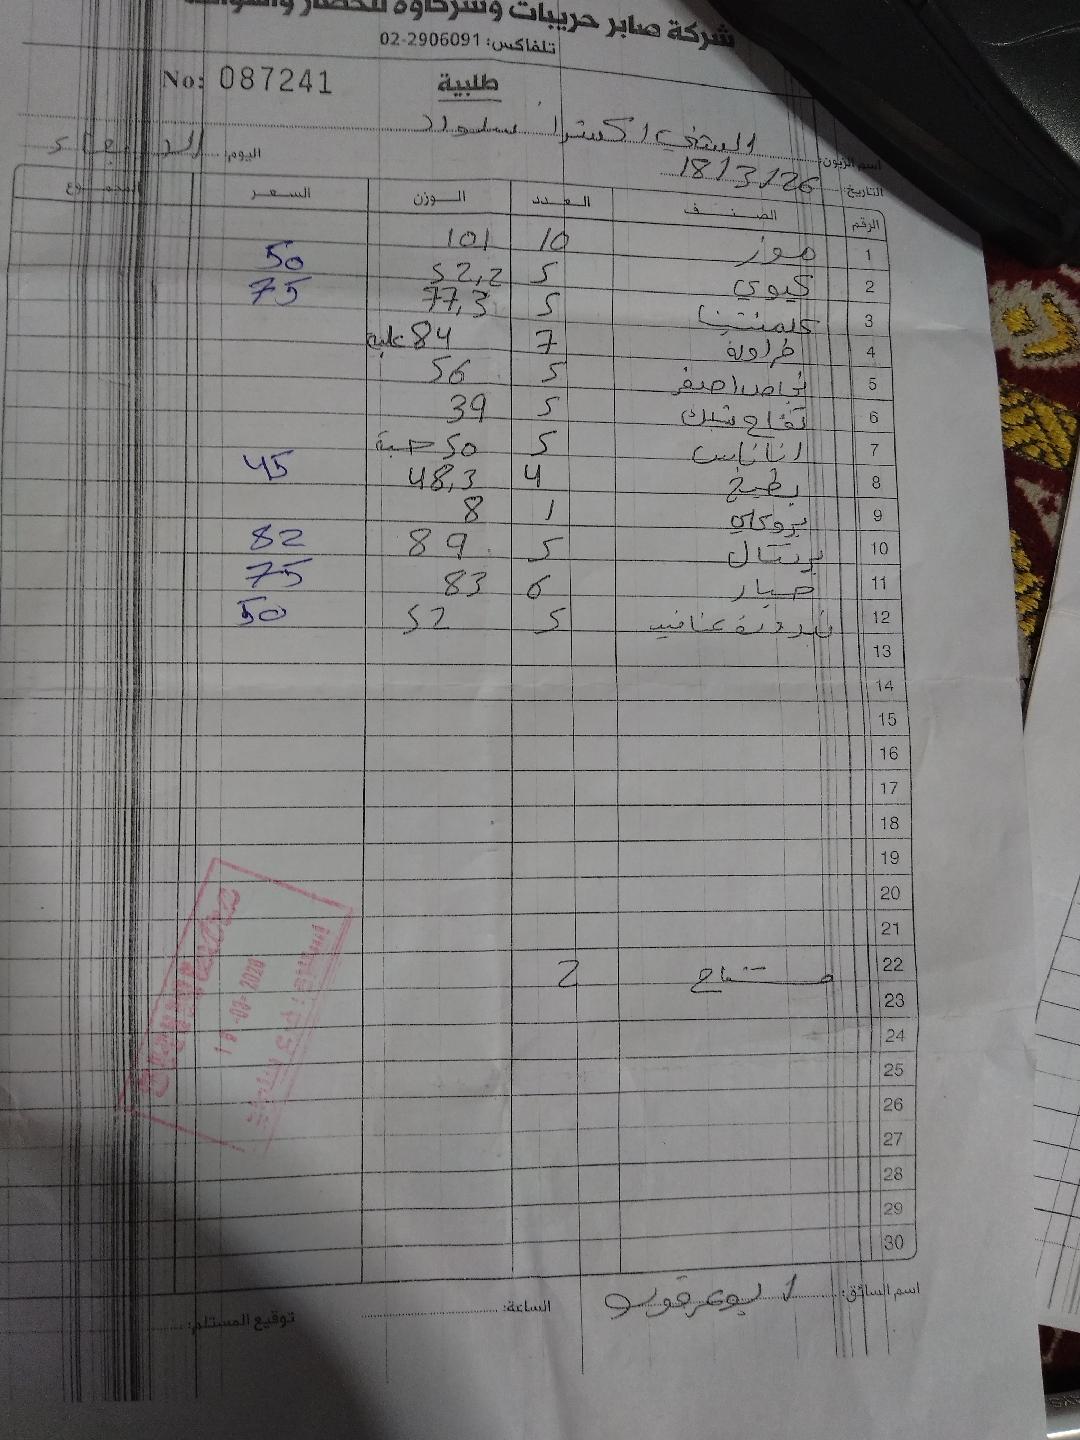 شركة صابر حريبات وشركاؤه للخضار والفواكه
تلفاكس: 02-2906091
No: 087241 طلبية
اسم الزبون: اكسترا سلواد اليوم: الاربعاء
التاريخ: 18/3/26
الرقم الصنف العدد الوزن السعر المجموع
1 موز 10 101
2 كيوي 5 52,2 50
3 كلمنتينا 5 77,3 75
4 فراولة 7 84 علبة
5 نجاص اصفر 5 56
6 تفاح 5 39
7 اناناس 5 50 حبة
8 بطيخ 4 48,3 45
9 بروكلي 1 8
10 برتقال 5 89 82
11 خيار 6 83 75
12 بندورة عناقيد 5 52 50
13
14
15
16
17
18
19
20
21
22 2
23
24
25
26
27
28
29
30
اسم السائق: الساعة: توقيع المستلم: